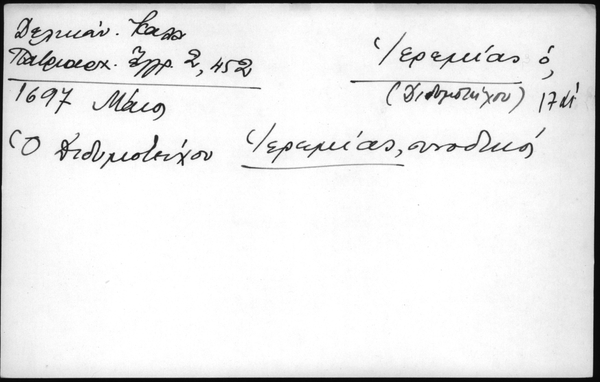 Δελικάν. Καλλ
Πατριαρχ. Ἔγγρ. 2, 452
Ἱερεμίας ὁ,
(Διδυμοτείχου) 17 αἰ
1697 Μάιος
Ὁ Διδυμοτείχου Ἱερεμίας, συνοδικός